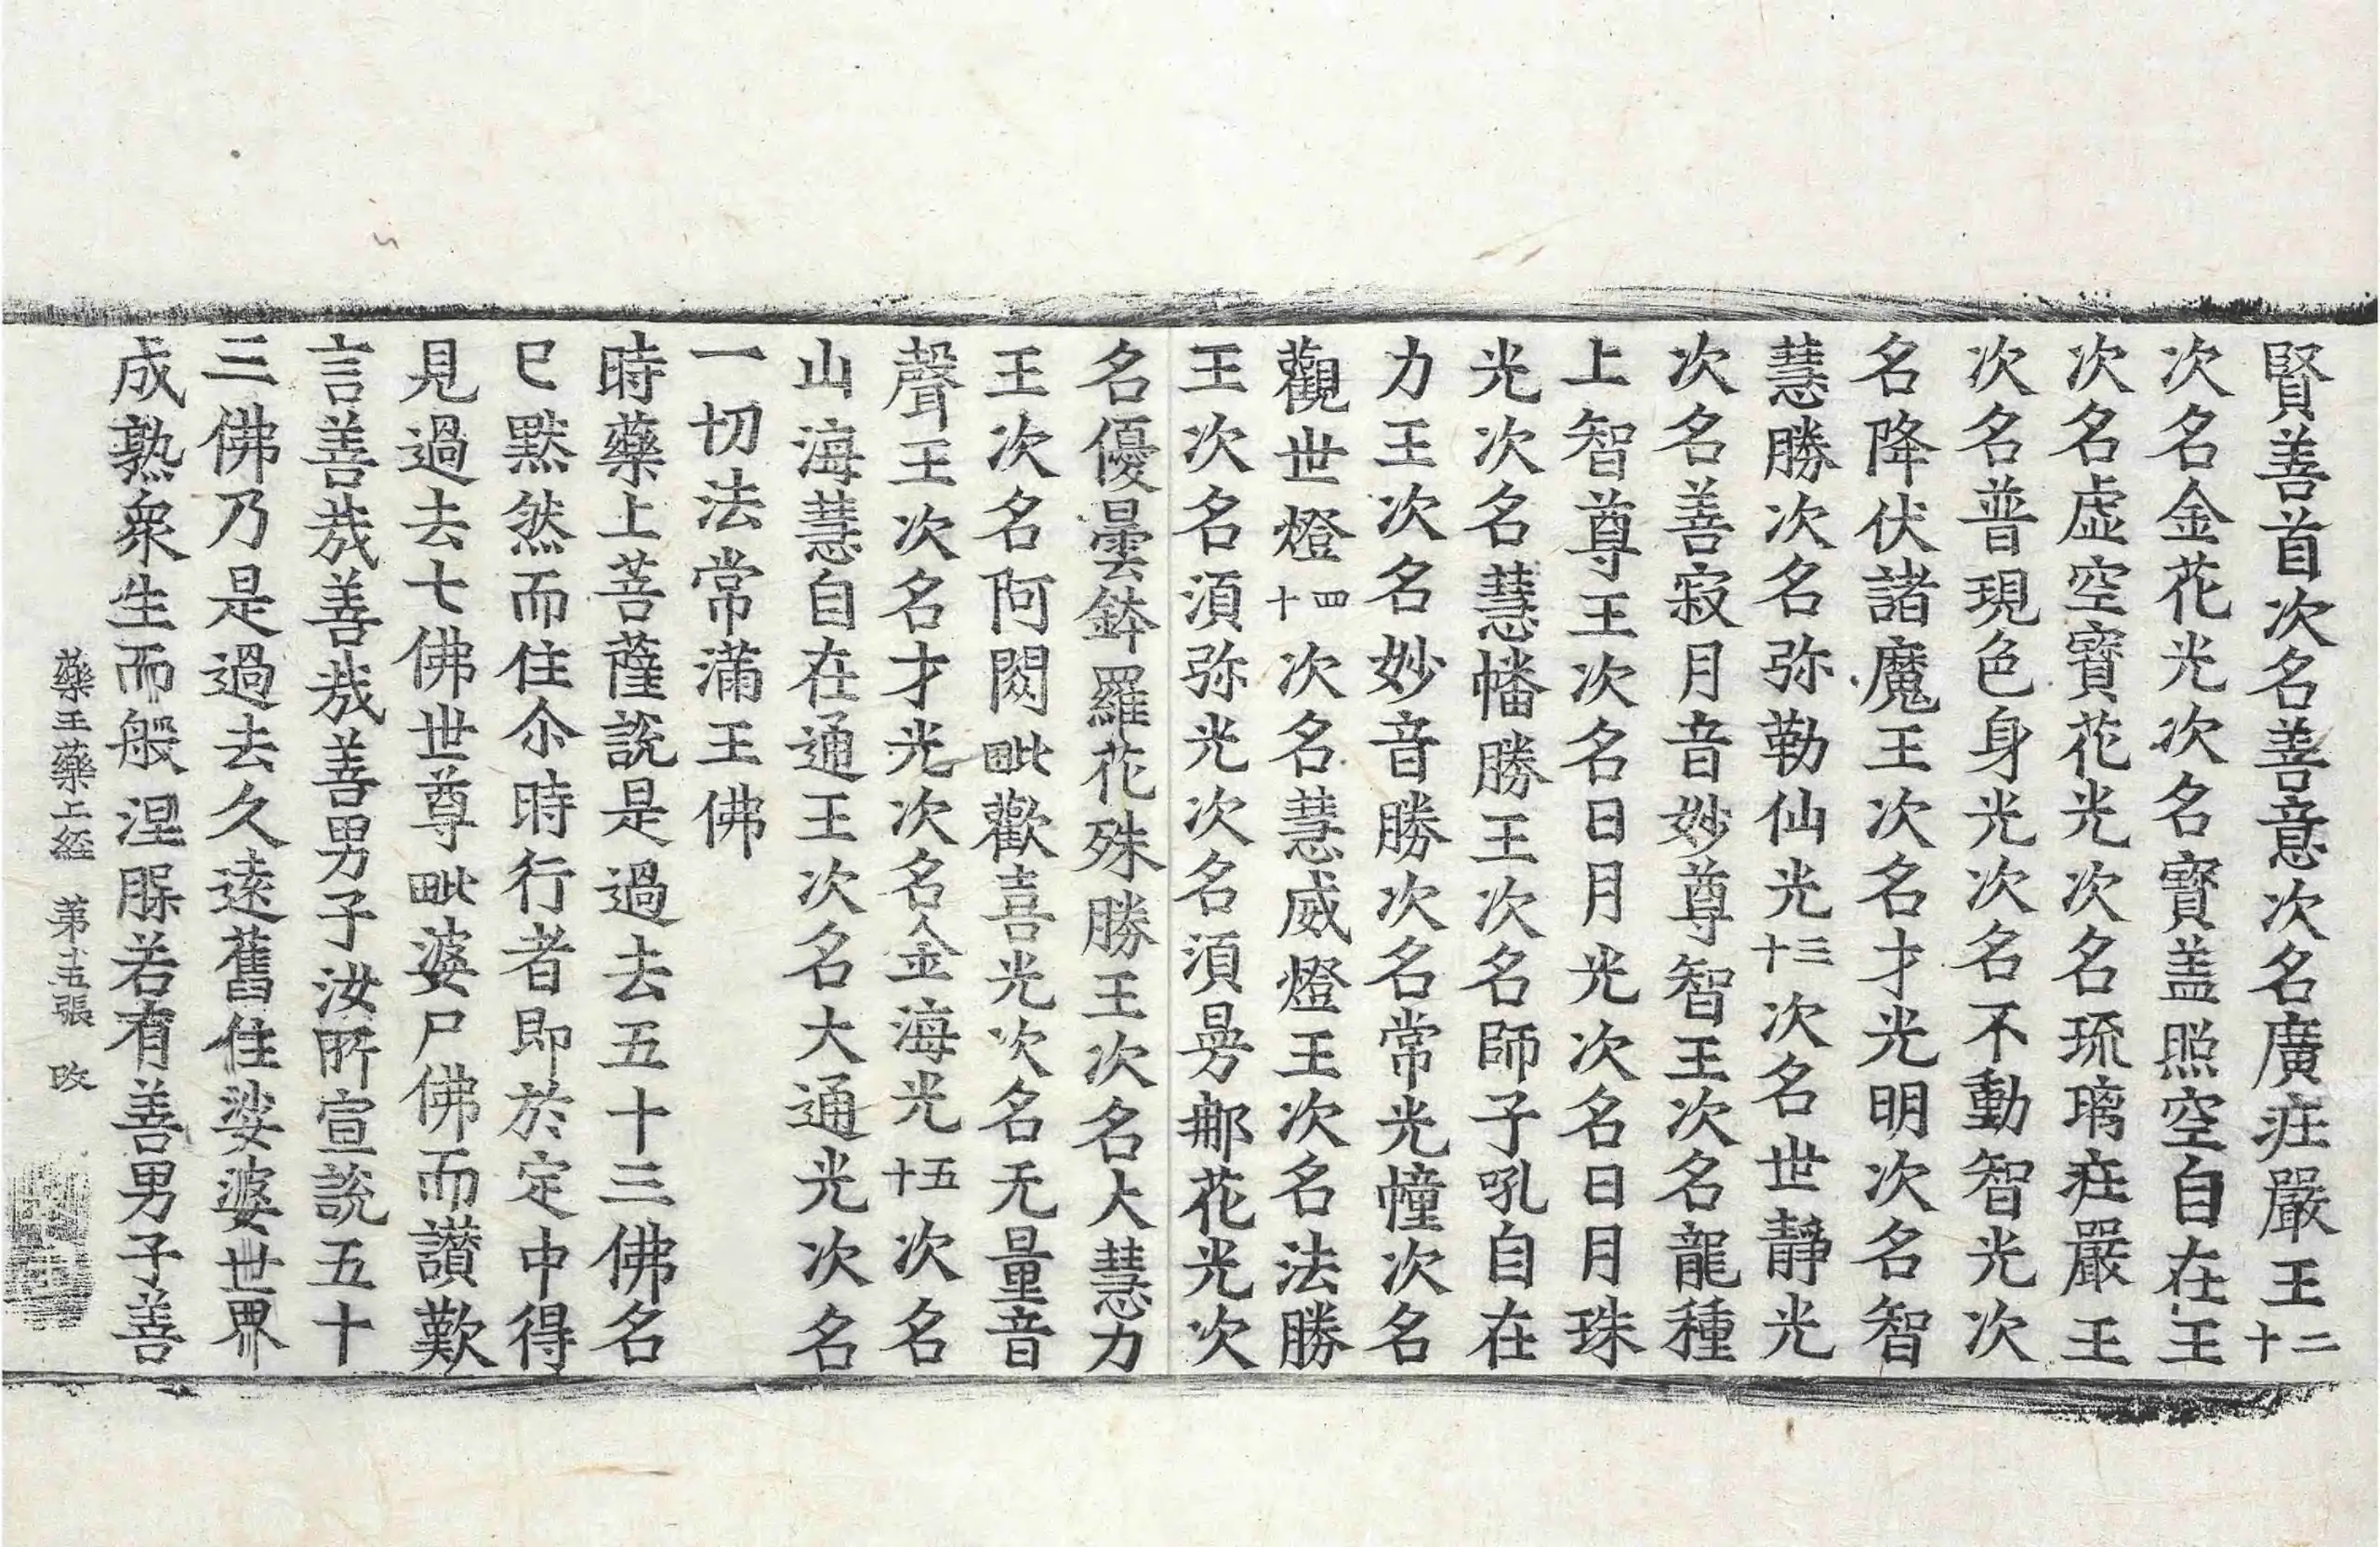 賢善首次名善意次名廣疘嚴王二十
次名金花光次名寶盖照空自在王
次名虛空寶花光次名琉璃疘嚴王
次名普現色身光次名不動智光次
名降伏諸魔王次名才光明次名智
慧勝次名弥勒仙光三十次名世静光
次名善寂月音妙尊智王次名龍種
上智尊王次名日月光次名日月珠
光次名慧幡勝王次名師子吼自在
力王次名妙音勝次名常光幢次名
觀世燈四十次名慧威燈王次名法勝
王次名湏弥光次名湏曼𨙻花光次
名優曇鉢羅花殊勝王次名大慧力
王次名阿閦毗歡喜光次名无量音
聲王次名才光次名金海光五十次名
山海慧自在通王次名大通光次名
一切法常滿王佛
時藥上菩薩說是過去五十三佛名
已黙然而住尒時行者即於定中得
見過去七佛世尊毗婆尸佛而讃歎
言善㢤善㢤善男子汝所宣說五十
三佛乃是過去久逺舊住娑婆世界
成熟衆生而般涅脲若有善男子善
藥王藥上経　苐十五張　改